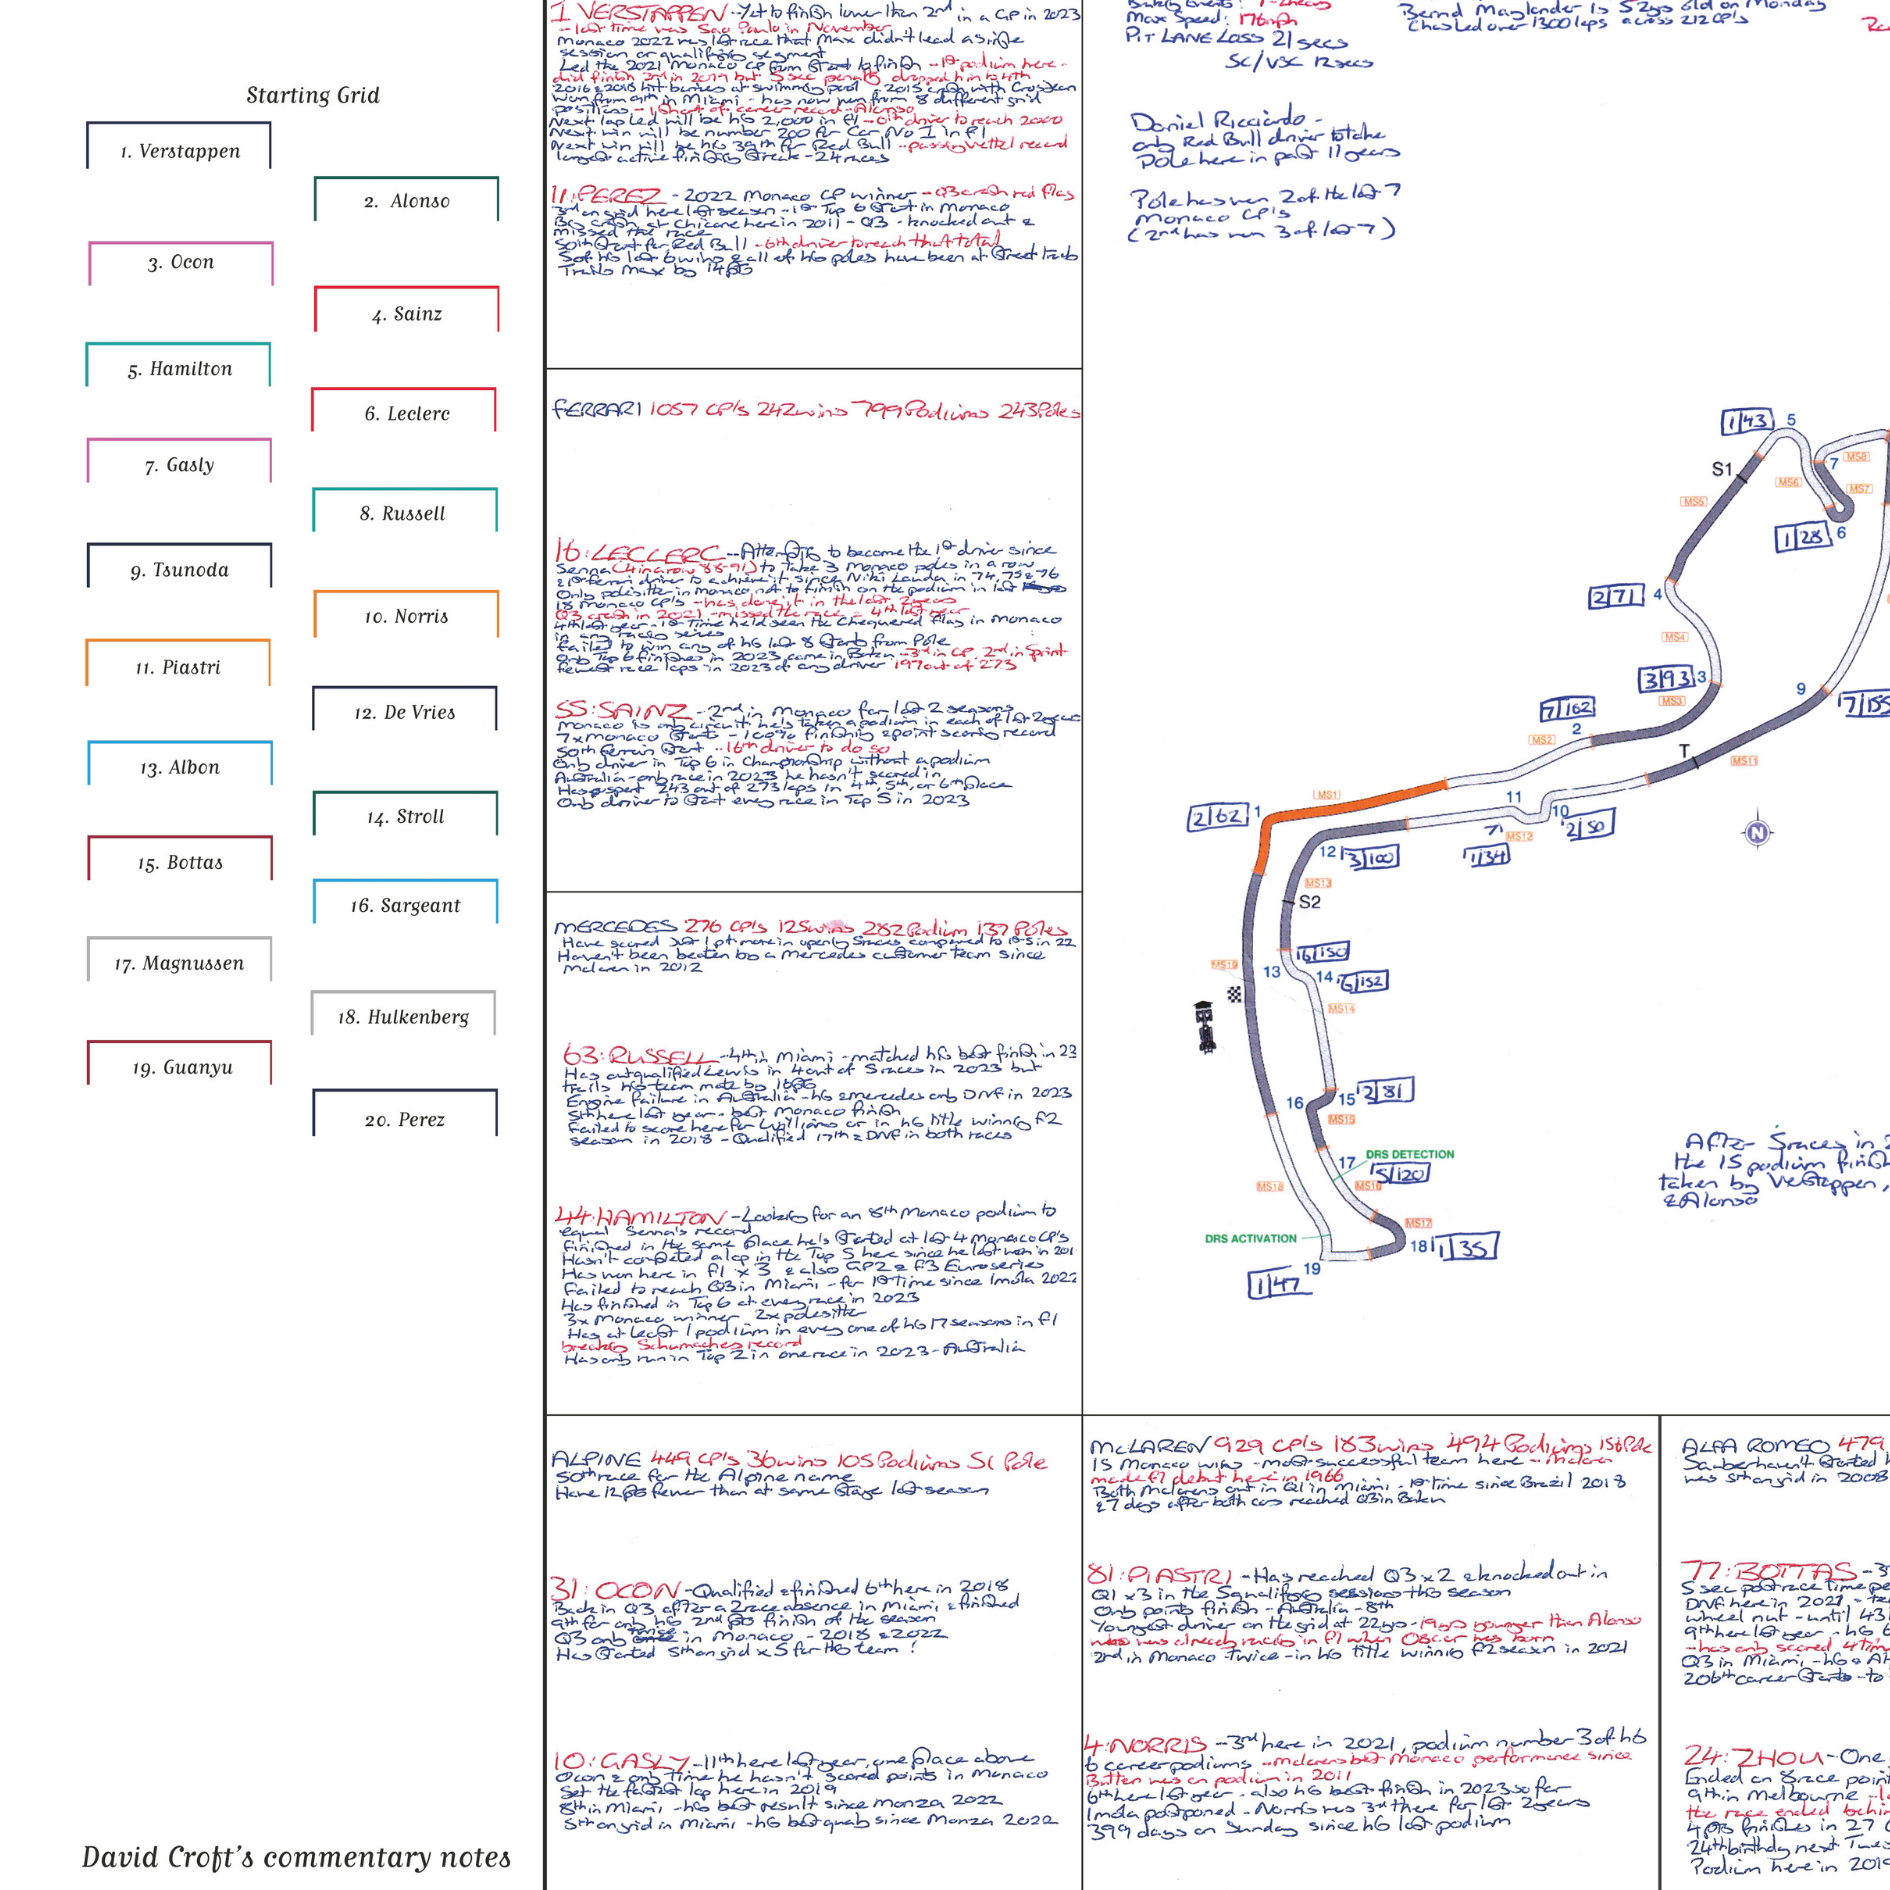 Starting Grid
1. Verstappen
2. Alonso
3. Ocon
4. Sainz
5. Hamilton
6. Leclerc
7. Gasly
8. Russell
9. Tsunoda
10. Norris
11. Piastri
12. De Vries
13. Albon
14. Stroll
15. Bottas
16. Sargeant
17. Magnussen
18. Hulkenberg
19. Guanyu
20. Perez
David Croft's commentary notes
1 VERSTAPPEN - Yet to finish lower than 2nd in a GP in 2023
- last time was Sao Paulo in November
Monaco 2022 was 1st race that Max didn't lead a single
session or qualifying segment
Led the 2021 Monaco GP from start to finish - 1st podium here -
did finish 2nd in 2019 but 5 sec penalty dropped him to 4th
2016 & 2018 hit barriers at swimming pool - 2015 crash with Grosjean
Won from 9th in Miami - has now won from 8 different grid
positions - 1 short of career record - Alonso
Next lap led will be his 2,000 in F1 - 6th driver to reach 2000
Next win will be number 200 for Car No 1 in F1
Next win will be his 39th for Red Bull - passing Vettel record
longest active finishing streak - 24 races
11: PEREZ - 2022 Monaco GP winner - Q3 crash red flag
3rd on grid here last season - 1st Top 6 start in Monaco
Big crash at Chicane here in 2011 - Q3 - knocked out &
missed the race
50th start for Red Bull - 6th driver to reach that total
5 of his last 6 wins & all of his poles have been at street tracks
Trails Max by 14pts
FERRARI 1057 GP's 242 wins 799 Podiums 243 Poles
16: LECLERC - Attempting to become the 1st driver since
Senna (4 in a row 88-91) to take 3 Monaco poles in a row
& 1st Ferrari driver to achieve it since Niki Lauda in 74, 75 & 76
Only polesitter in Monaco not to finish on the podium in last
18 Monaco GP's - has done it in the last 2 years
Q3 crash in 2021 - missed the race & 4th last year
4th last year - 1st time he'd seen the chequered flag in Monaco
in any races series
Failed to win any of his last 8 starts from Pole
Only Top 6 finishes in 2023 came in Baku - 3rd in GP, 2nd in Sprint
fewest race laps in 2023 of any driver 197 out of 273
55: SAINZ - 2nd in Monaco for last 2 seasons
Monaco is only circuit he's taken a podium in each of last 2 years
7x Monaco starts - 100% finishing & point scoring record
50th Ferrari start - 16th driver to do so
Only driver in Top 6 in Championship without a podium
Australia - only race in 2023 he hasn't scored in
Has spent 243 out of 273 laps in 4th, 5th, or 6th place
Only driver to start every race in Top 5 in 2023
MERCEDES 276 GP's 125 wins 282 Podium 137 Poles
Have scored just 1 pt more in opening 5 races compared to 1st 5 in 22
Haven't been beaten by a Mercedes customer team since
McLaren in 2012
63: RUSSELL - 4th in Miami - matched his best finish in 23
Has outqualified Lewis in 4 out of 5 races in 2023 but
trails his team mate by 16pts
Engine failure in Australia - his & Mercedes only DNF in 2023
5th here last year - best Monaco finish
Failed to score here for Williams or in his title winning F2
season in 2018 - Qualified 17th & DNF in both races
44: HAMILTON - Looking for an 8th Monaco podium to
equal Senna's record
Finished in the same place he's started at last 4 Monaco GP's
Hasn't completed a lap in the Top 5 here since he last won in 201
Has won here in F1 x 3 & also GP2 & F3 Euroseries
Failed to reach Q3 in Miami - for 1st time since Imola 2022
Has finished in Top 6 at every race in 2023
3x Monaco winner 2x polesitter
Has at least 1 podium in every one of his 17 seasons in F1
breaking Schumacher's record
Has only run in Top 2 in one race in 2023 - Australia
ALPINE 449 GP's 36 wins 105 Podiums 51 Pole
50th race for the Alpine name
Have 12 pts fewer than at same stage last season
31: OCON - Qualified & finished 6th here in 2018
Back in Q3 after a 2 race absence in Miami & finished
9th for only his 2nd pts finish of the season
Q3 only twice in Monaco - 2018 & 2022
Has started 5th on grid x 5 for this team!
10: GASLY - 11th here last year, one place above
Ocon & only time he hasn't scored points in Monaco
Set the fastest lap here in 2019
8th in Miami - his best result since Monza 2022
5th on grid in Miami - his best qualy since Monza 2022
Max Speed: 176mph
PIT LANE LOSS 21 secs
SC/VSC 12 secs
Bernd Maylander is 52yrs old on Monday
Chas led over 1300 laps across 212 GP's
Daniel Ricciardo -
only Red Bull driver to take
Pole here in past 11 years
Pole has won 2 of the last 7
Monaco GP's
(2nd has won 3 of last 7)
1|43 5
S1
MS5
MS6
7 MS8
MS7
1|28 6
2|71 4
MS4
3|93 3
MS3
9
7|155
7|162
2
MS2
T
MS11
MS1
2|62 1
11
10
2|50
7
MS12
1|34
12 3|100
MS13
S2
6|150
13
14 6|152
MS19
MS14
N
15 2|81
16
MS15
17 DRS DETECTION
5|120
MS16
MS18
MS17
DRS ACTIVATION
18 1|35
19
1|47
After 5 races in 2
the 15 podium finish
taken by Verstappen,
& Alonso
McLAREN 929 GP's 183 wins 494 Podiums 156 Pole
15 Monaco wins - most successful team here - McLaren
made F1 debut here in 1966
Both McLarens out in Q1 in Miami - 1st time since Brazil 2018
& 7 days after both cars reached Q3 in Baku
81: PIASTRI - Has reached Q3 x 2 & knocked out in
Q1 x 3 in the 5 qualifying sessions this season
Only points finish - Australia - 8th
Youngest driver on the grid at 22yo - 19yrs younger than Alonso
who was already racing in F1 when Oscar was born
2nd in Monaco twice - in his title winning F2 season in 2021
4: NORRIS - 3rd here in 2021, podium number 3 of his
6 career podiums - McLarens best Monaco performance since
Button was on podium in 2011
6th here last year - also his best finish in 2023 so far
Imola postponed - Norris was 3rd there for last 2 years
399 days on Sunday since his last podium
ALFA ROMEO 479
Sauber haven't started h
was 5th on grid in 2008
77: BOTTAS - 3
5 sec post race time pe
DNF here in 2021 -
wheel nut - until 43
9th here last year - his 6
- has only scored 4 tim
Q3 in Miami - his & Al
206th career starts - to
24: ZHOU - One
Ended an 8 race point
9th in Melbourne -
the race ended behin
4 pts finishes in 27 G
24th birthday next Tues
Podium here in 2019